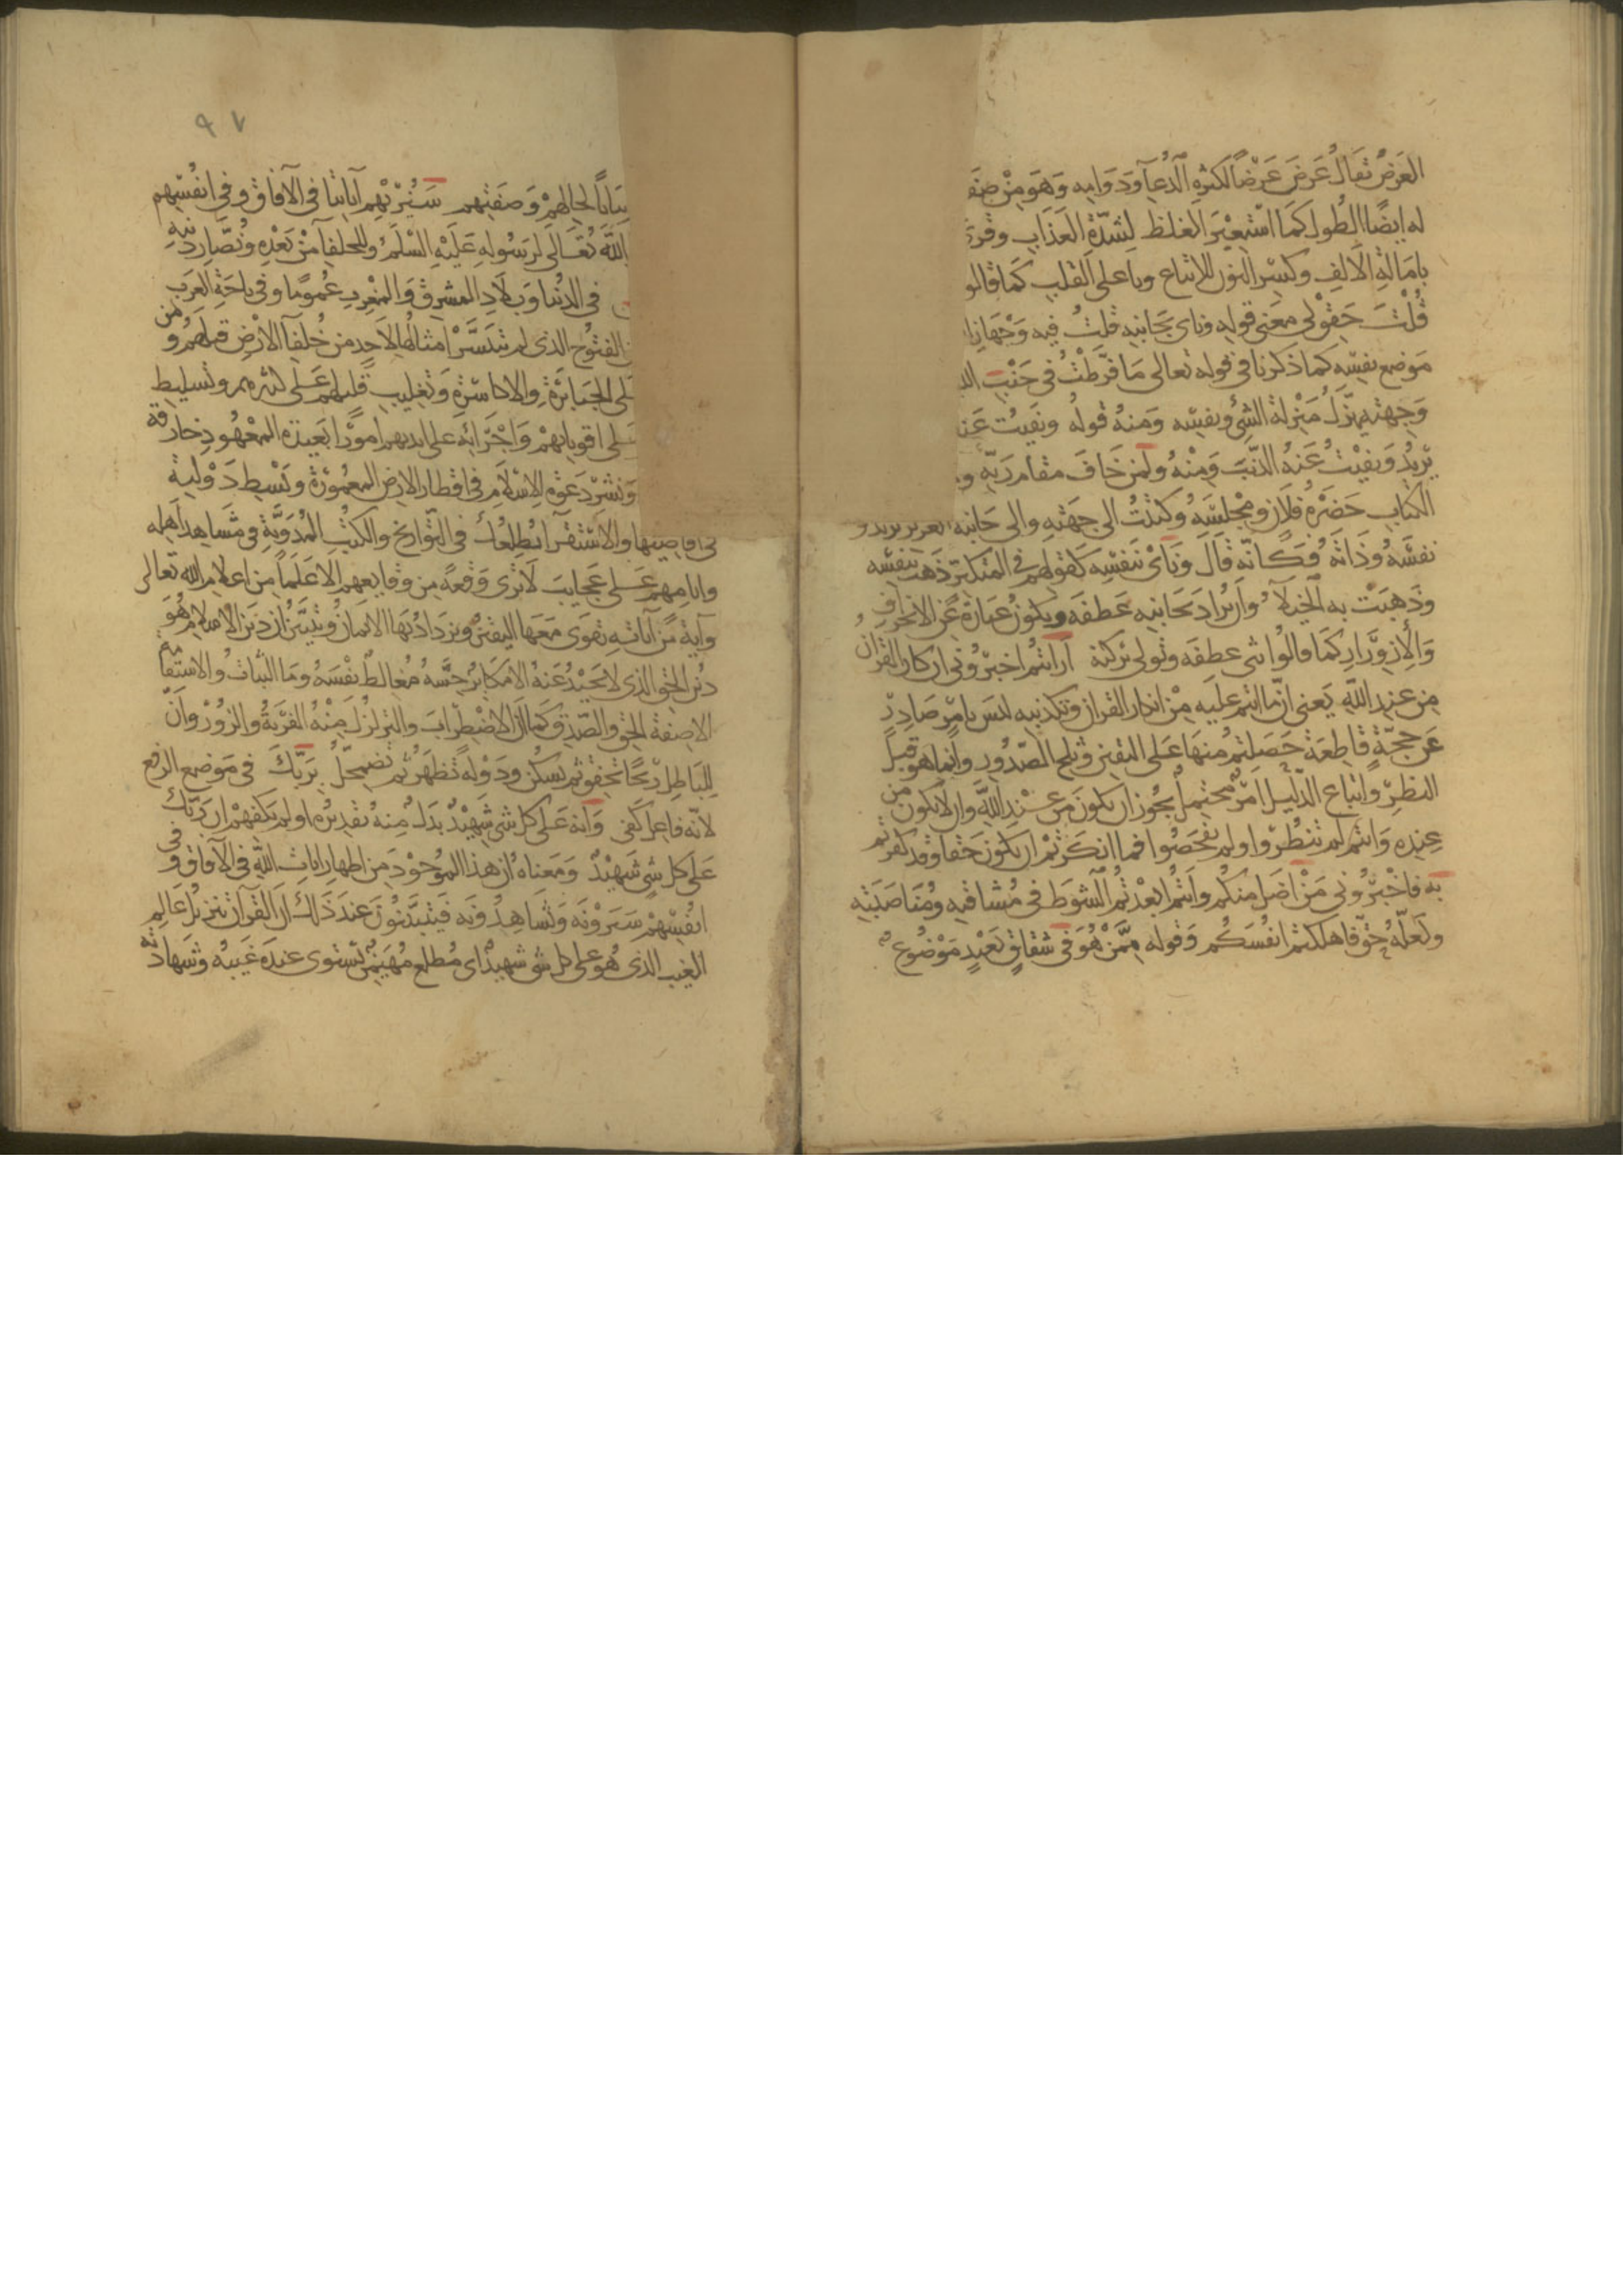 العرض يقال عرض عرضا لكثرة الدعاء ودوامه وهو من صف
له ايضا الطول كما استعير الغلظ لشدة العذاب وقرئ
بامالة الالف وكسر النون للاتباع وناء على القلب كما قالو
قلت حقق لى معنى قوله وناى بجانبه قلت فيه وجهان ا
موضع نفسه كما ذكرنا فى قوله تعالى ما فرطت فى جنب الل
وجهته ينزل منزلة الشئ ونفسه ومنه قوله ونفيت عن
يريد ونفيت عنه الذئب ومنه ولمن خاف مقام ربه و
الكتاب حضرة فلان ومجلسه وكتبت الى جهته والى جانبه العزيز يريدو
نفسه وذاته فكانه قال وناى بنفسه كقولهم فى المتكبر ذهب بنفسه
وذهبت به الخيلاء وان يراد بجانبه عطفه ويكون عبارة عن الانحراف
والازورار كما قالوا ثنى عطفه وتولى بركنه ارايتم اخبرونى ان كان القران
من عند الله يعنى ان ما انتم عليه من انكار القران وتكذيبه ليس بامر صادر
عن حجة قاطعة حصلتم منها على اليقين وثلج الصدور وانما هو قبل
النظر واتباع الدليل امر محتمل يجوز ان يكون من عند الله وان لا يكون من
عنده وانتم لم تنظروا ولم تفحصوا فما انكرتم ان يكون حقا وقد كفرتم
به فاخبرونى من اضل منكم وانتم ابعدتم الشوط فى مشاقته ومناصبته
ولعله حق فاهلكتم انفسكم وقوله ممن هو فى شقاق بعيد موضوع
٩٧
بيانا لحالهم وصفتهم سنريهم آياتنا فى الآفاق وفى انفسهم
الله تعالى لرسوله عليه السلم وللخلفا من بعده ونصار دينه
فى الدنيا وبلاد المشرق والمغرب عموما وفى باحة العرب
الفتوح الذى لم تتيسر امثالها لاحد من خلفا الارض قبلهم و من
لى الجبابرة والاكاسرة وتغليب قليلهم على كثيرهم وتسليط
لى اقويائهم واجرائه على ايديهم امورا بعيدة المعهود خارقة
ونشر دعوة الاسلام فى اقطار الارض المعمورة وبسط دولته
فى اقاصيها والاستقرا يطلعك فى التواريخ والكتب المدونة فى مشاهد اهله
وايامهم على عجايب لا ترى وقعة من وقايعهم الا علما من اعلام الله تعالى
وآية من آياته يقوى معها اليقين ويزداد بها الايمان ويتبين ان دين الاسلام هو
دين الحق الذى لا يحيد عنه الا مكابر حسه مغالط نفسه وما الثبات والاستقامة
الا صفة الحق والصدق كما ان الاضطراب والتزلزل صفة الفرية والزور وان
للباطل ريحا تخفق ثم تسكن ودولة تظهر ثم تضمحل بربك فى موضع الرفع
لانه فاعل كفى وانه على كل شئ شهيد بدل منه تقديره اولم يكفهم ان ربك
على كل شئ شهيد ومعناه ان هذا الموعود من اظهار ايات الله فى الآفاق و فى
انفسهم سيرونه ويشاهدونه فيتبينون عند ذلك ان القرآن تنزيل عالم
الغيب الذى هو على كل شئ شهيد اى مطلع مهيمن يستوى عنده غيبه وشهادته